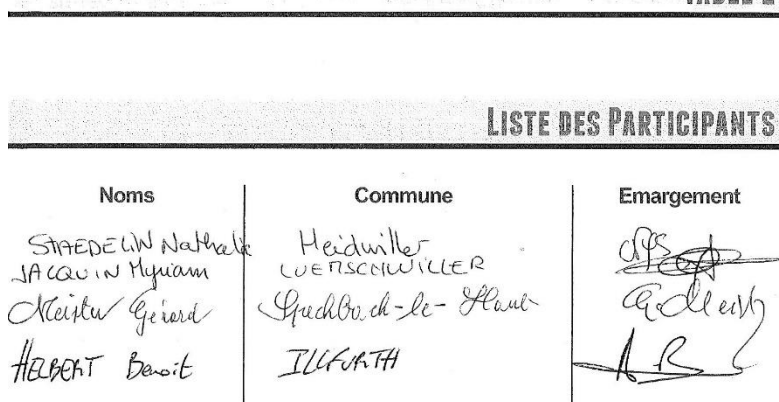 LISTE DES PARTICIPANTS
Noms Commune Emargement
STAEDELIN Nathalie Heidwiller
JACQUIN Myriam LUEMSCHWILLER
Meister Gérard Spechbach-le-Haut G. Meister
HELBERT Benoit ILLFURTH